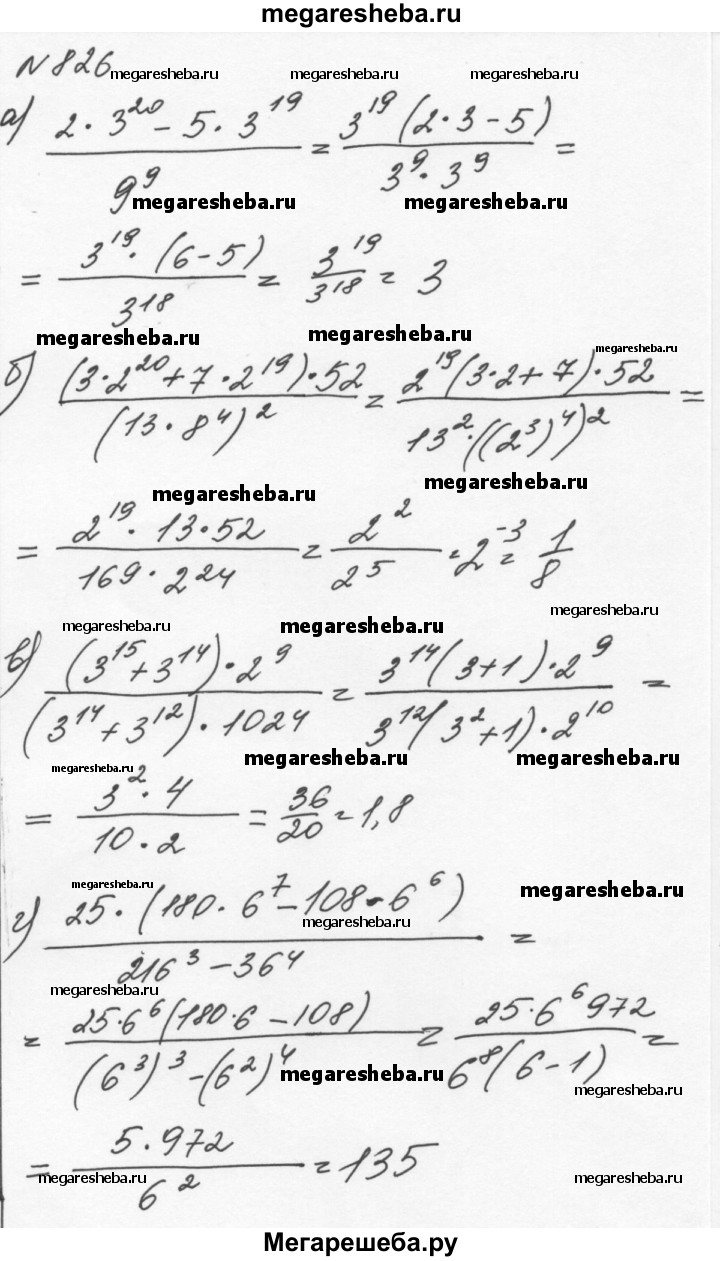 megaresheba.ru
N 826 megaresheba.ru megaresheba.ru megaresheba.ru
а) (2·3^20 − 5·3^19)/9^9 = (3^19 (2·3−5))/(3^9·3^9) =
megaresheba.ru megaresheba.ru
= (3^19·(6−5))/3^18 = 3^19/3^18 = 3
megaresheba.ru megaresheba.ru megaresheba.ru
б) ((3·2^20+7·2^19)·52)/(13·8^4)^2 = (2^19(3·2+7)·52)/(13^2·((2^3)^4)^2) =
megaresheba.ru megaresheba.ru
= (2^19·13·52)/(169·2^24) = 2^2/2^5 = 2^-3 = 1/8
megaresheba.ru megaresheba.ru megaresheba.ru
в) ((3^15+3^14)·2^9)/((3^14+3^12)·1024) = (3^14(3+1)·2^9)/(3^12(3^2+1)·2^10) =
megaresheba.ru megaresheba.ru megaresheba.ru
= (3^2·4)/(10·2) = 36/20 = 1,8
megaresheba.ru megaresheba.ru
г) (25·(180·6^7−108·6^6))/(216^3−36^4) =
megaresheba.ru megaresheba.ru
= (25·6^6(180·6−108))/((6^3)^3−(6^2)^4) = (25·6^6 972)/(6^8(6−1)) =
megaresheba.ru megaresheba.ru
= (5·972)/6^2 = 135
megaresheba.ru megaresheba.ru
Мегарешеба.ру